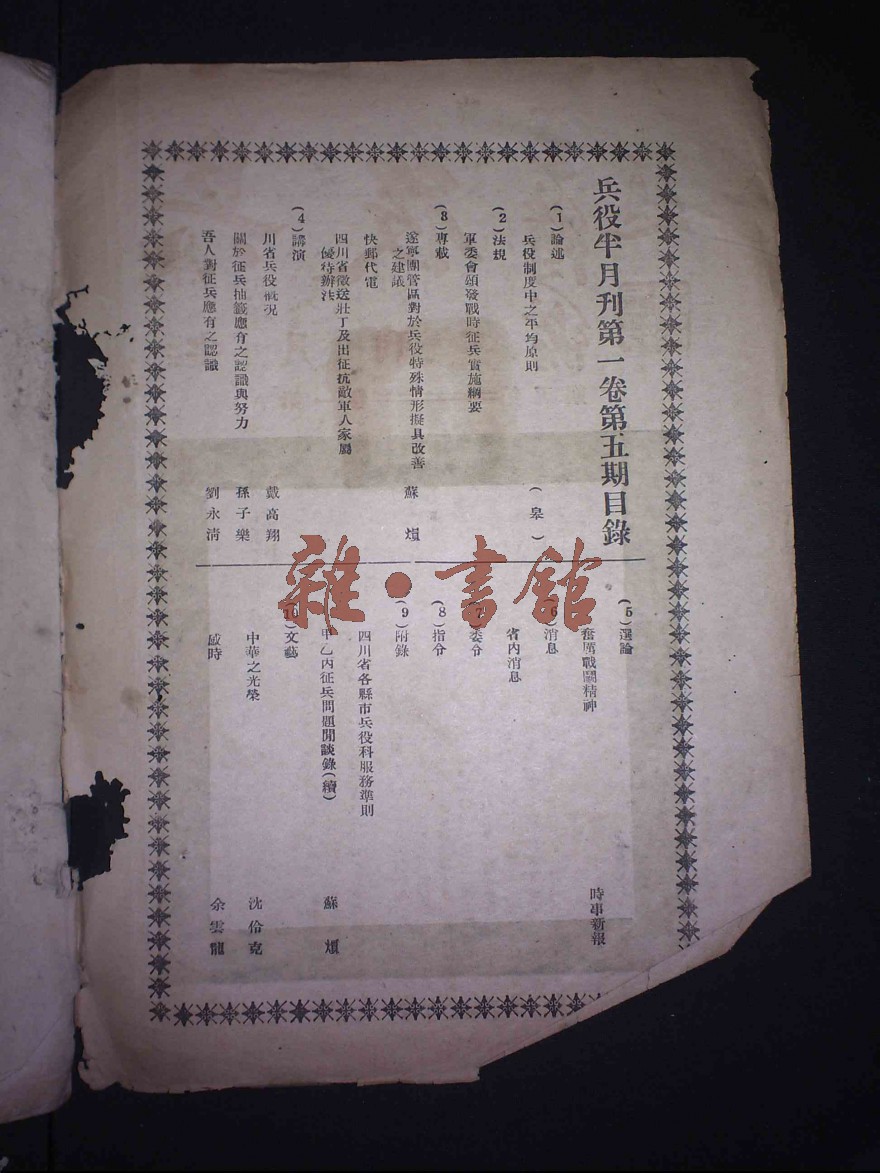 兵役半月刊第一卷第五期目錄
(1)論述
兵役制度中之平均原則 (皋)
(2)法規
軍委會頒發戰時征兵實施綱要
(3)專載
遂寧團管區對於兵役特殊情形擬具改善之建議 蘇煩
快郵代電
四川省徵送壯丁及出征抗敵軍人家屬優待辦法
(4)講演
川省兵役概況 戴高翔
關於征兵抽籤應有之認識與努力 孫子樂
吾人對征兵應有之認識 劉永清
(5)選論
奮厲戰鬬精神 時事新報
(6)消息
省內消息
(7)委令
(8)指令
(9)附錄
四川省各縣市兵役科服務準則
甲乙丙征兵問題閒談錄(續) 蘇煩
(10)文藝
中華之光榮 沈伯克
感時 余雲龍
雜·書館